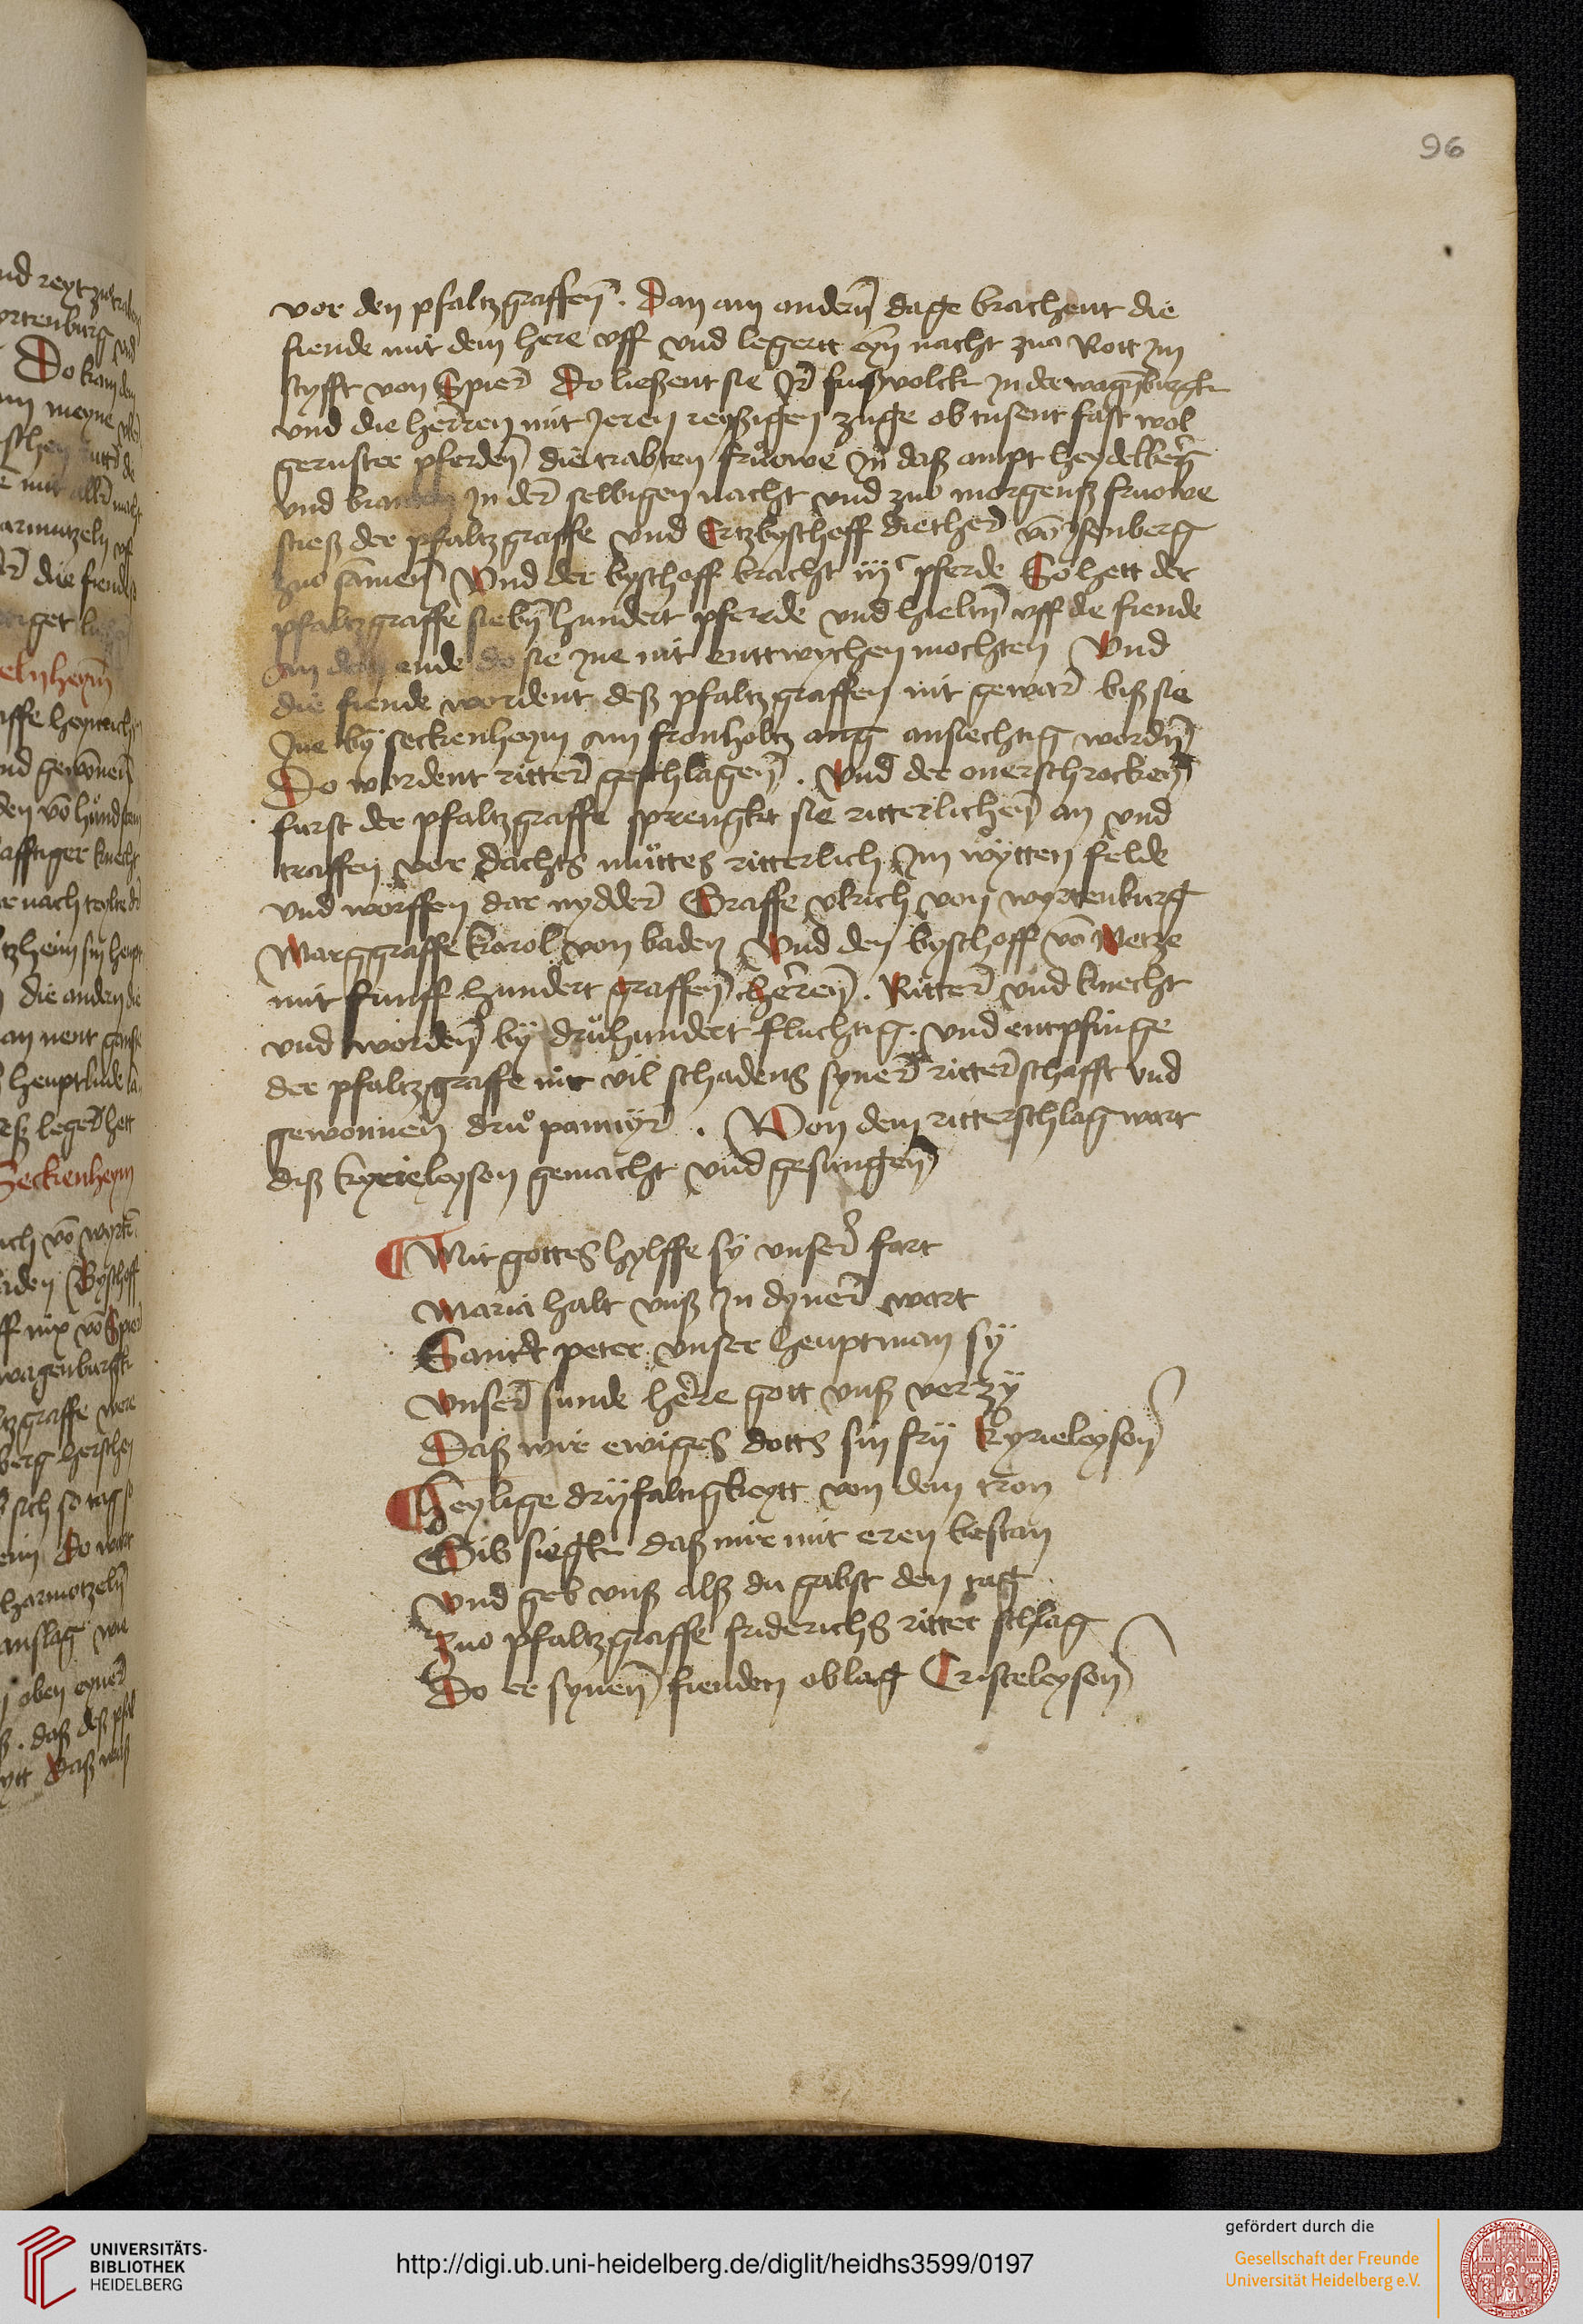 96
vor den pfaltzgraffen̄. Dan am andern̄ dage brachent die
fiende mit dem here vff vnd legertt eyn̄ nacht zuo Rott Im
styfft von Spier Do ließent sie Ir fußvolck In der wagēburgk
vnd die herren mit Jeren reyßigen zuge ob tusent fast wol
geruster pferden̄ die trabten fruͦwe In daß ampt heydelberg
vnd In der selbigen nacht vnd zuo morgenß fruowe
stieß der pfaltzgraffe vnd Ertzbyschoff diether vō ysenberg
zuo samen̄ Vnd der byschoff bracht iijc pferde So hett der
pfaltzgraffe siebn̄ hundert pferrde vnd hieltn̄ vff die fiende
an dem ende do sie Ine nit enttwychen mochten Vnd
die fiende wordent deß pfaltzgraffen nit gewar biß sie
Ine by seckenheym am fronholtz ansiechtig wordn̄
Do wordent ritter geschlagen̄. Vnd der onerschrocken̄
furst der pfaltzgraffe sprengkt sie ritterlichen̄ an vnd
traffen vor dachts muͦttes ritterlich Im wÿtten felde
vnd worffen dar nydder Graffe vlrich von wyrtenburg
Marggraffe karol von baden Vnd den byschoff vō Metze
mit funff hundert graffen̄ herren̄. Ritter vnd knecht
vnd worden̄ bÿ druͦhundert fluchtig. vnd entpfinge
der pfaltzgraffe nit vil schadens syner ritterschafft vnd
gewonnen druͦ pannÿr. Von dem ritterschlag wart
diß kyrieleyson gemacht vnd gesungen̄
Mit gottes hylffe sÿ vnser fart
Maria halt vnß In dyner wart
Sanct peter vnser heuptman sÿ
Vnser sunde herre gott vnß verzÿ
Daß wir ewiges dotts sin frÿ kyrieleyson̄
Heylige drÿfaltigkeytt von dem tron
Gib siegk daß wir mit eren bestan
Vnd geb vnß alß du gabst den tag
Zuo pfaltzgraffe friderichs ritter schlag
Do er synen̄ fienden oblag Cristeleyson̄
UNIVERSITÄTS-
BIBLIOTHEK
HEIDELBERG
http://digi.ub.uni-heidelberg.de/diglit/heidhs3599/0197
gefördert durch die
Gesellschaft der Freunde
Universität Heidelberg e.V.